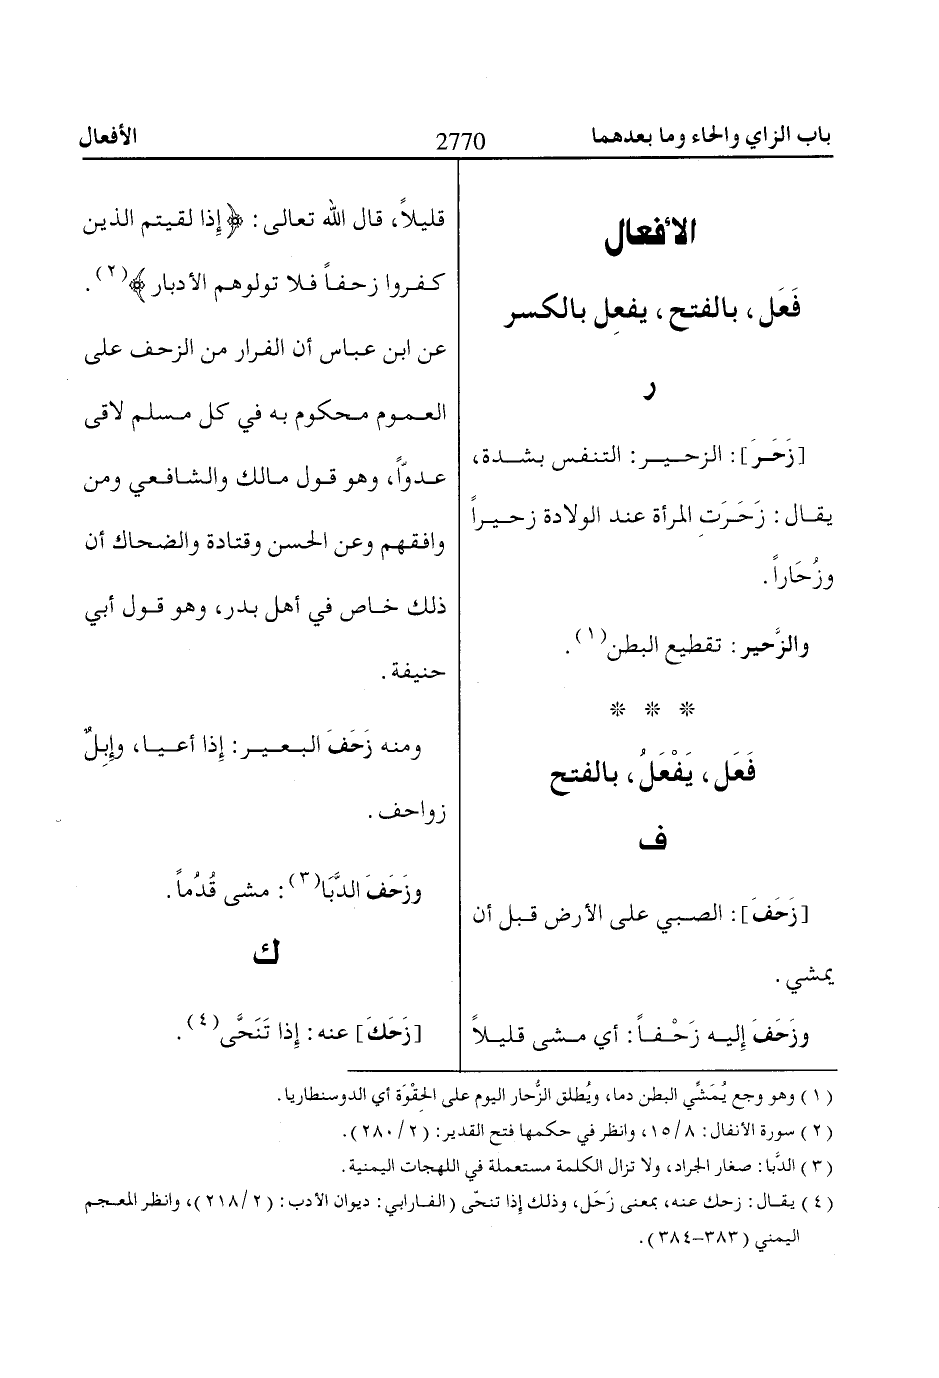 باب الزاي والحاء وما بعدهما
2770
الأفعال
الأفعال
فَعَل، بالفتح، يفعِل بالكسر
ر
[زَحَرَ]: الزحيـر: التنفس بشدة،
يقال: زَحَرَتِ المرأة عند الولادة زحيراً
وزُحَاراً.
والزَّحير: تقطيع البطن(١).
* * *
فَعَل، يَفْعَلُ، بالفتح
ف
[زَحَفَ]: الصبي على الأرض قبل أن
يمشي.
وزَحَفَ إليه زَحْفاً: أي مشى قليلاً
قليلاً، قال الله تعالى: ﴿إذا لقيتم الذين
كفروا زحفاً فلا تولوهم الأدبار﴾(٢).
عن ابن عباس أن الفرار من الزحف على
العموم محكوم به في كل مسلم لاقى
عدوّاً، وهو قول مالك والشافعي ومن
وافقهم وعن الحسن وقتادة والضحاك أن
ذلك خاص في أهل بدر، وهو قول أبي
حنيفة.
ومنه زَحَفَ البعير: إذا أعيا، وإِبِلٌ
زواحف.
وزَحَفَ الدَّبَا(٣): مشى قُدُماً.
ك
[زَحَكَ] عنه: إذا تَنَحَّى(٤).
(١) وهو وجع يُمَشِّي البطن دما، ويُطلق الزُّحار اليوم على الحِقْوَة أي الدوسنطاريا.
(٢) سورة الأنفال: ١٥/٨، وانظر في حكمها فتح القدير: (٢٨٠/٢).
(٣) الدَّبا: صغار الجراد، ولا تزال الكلمة مستعملة في اللهجات اليمنية.
(٤) يقال: زحك عنه، بمعنى زَحَل، وذلك إذا تنحّى (الفارابي: ديوان الأدب: (٢١٨/٢)، وانظر المعجم
اليمني (٣٨٣–٣٨٤).